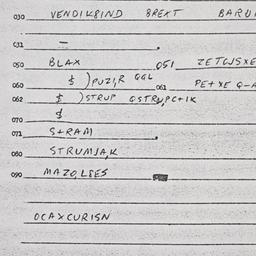 030 VENDIK8IND BREXT BARU
031 —
050 BLAX 051 ZETWSXE
060 $ )PUZI,R GGL 061 PE+XE G-A
062 $ )STRUP GSTRUPC+IK
070 $
071 S+RAM
080 STRUMJA,K
090 MAZO,L8ES
OCAXCURISN